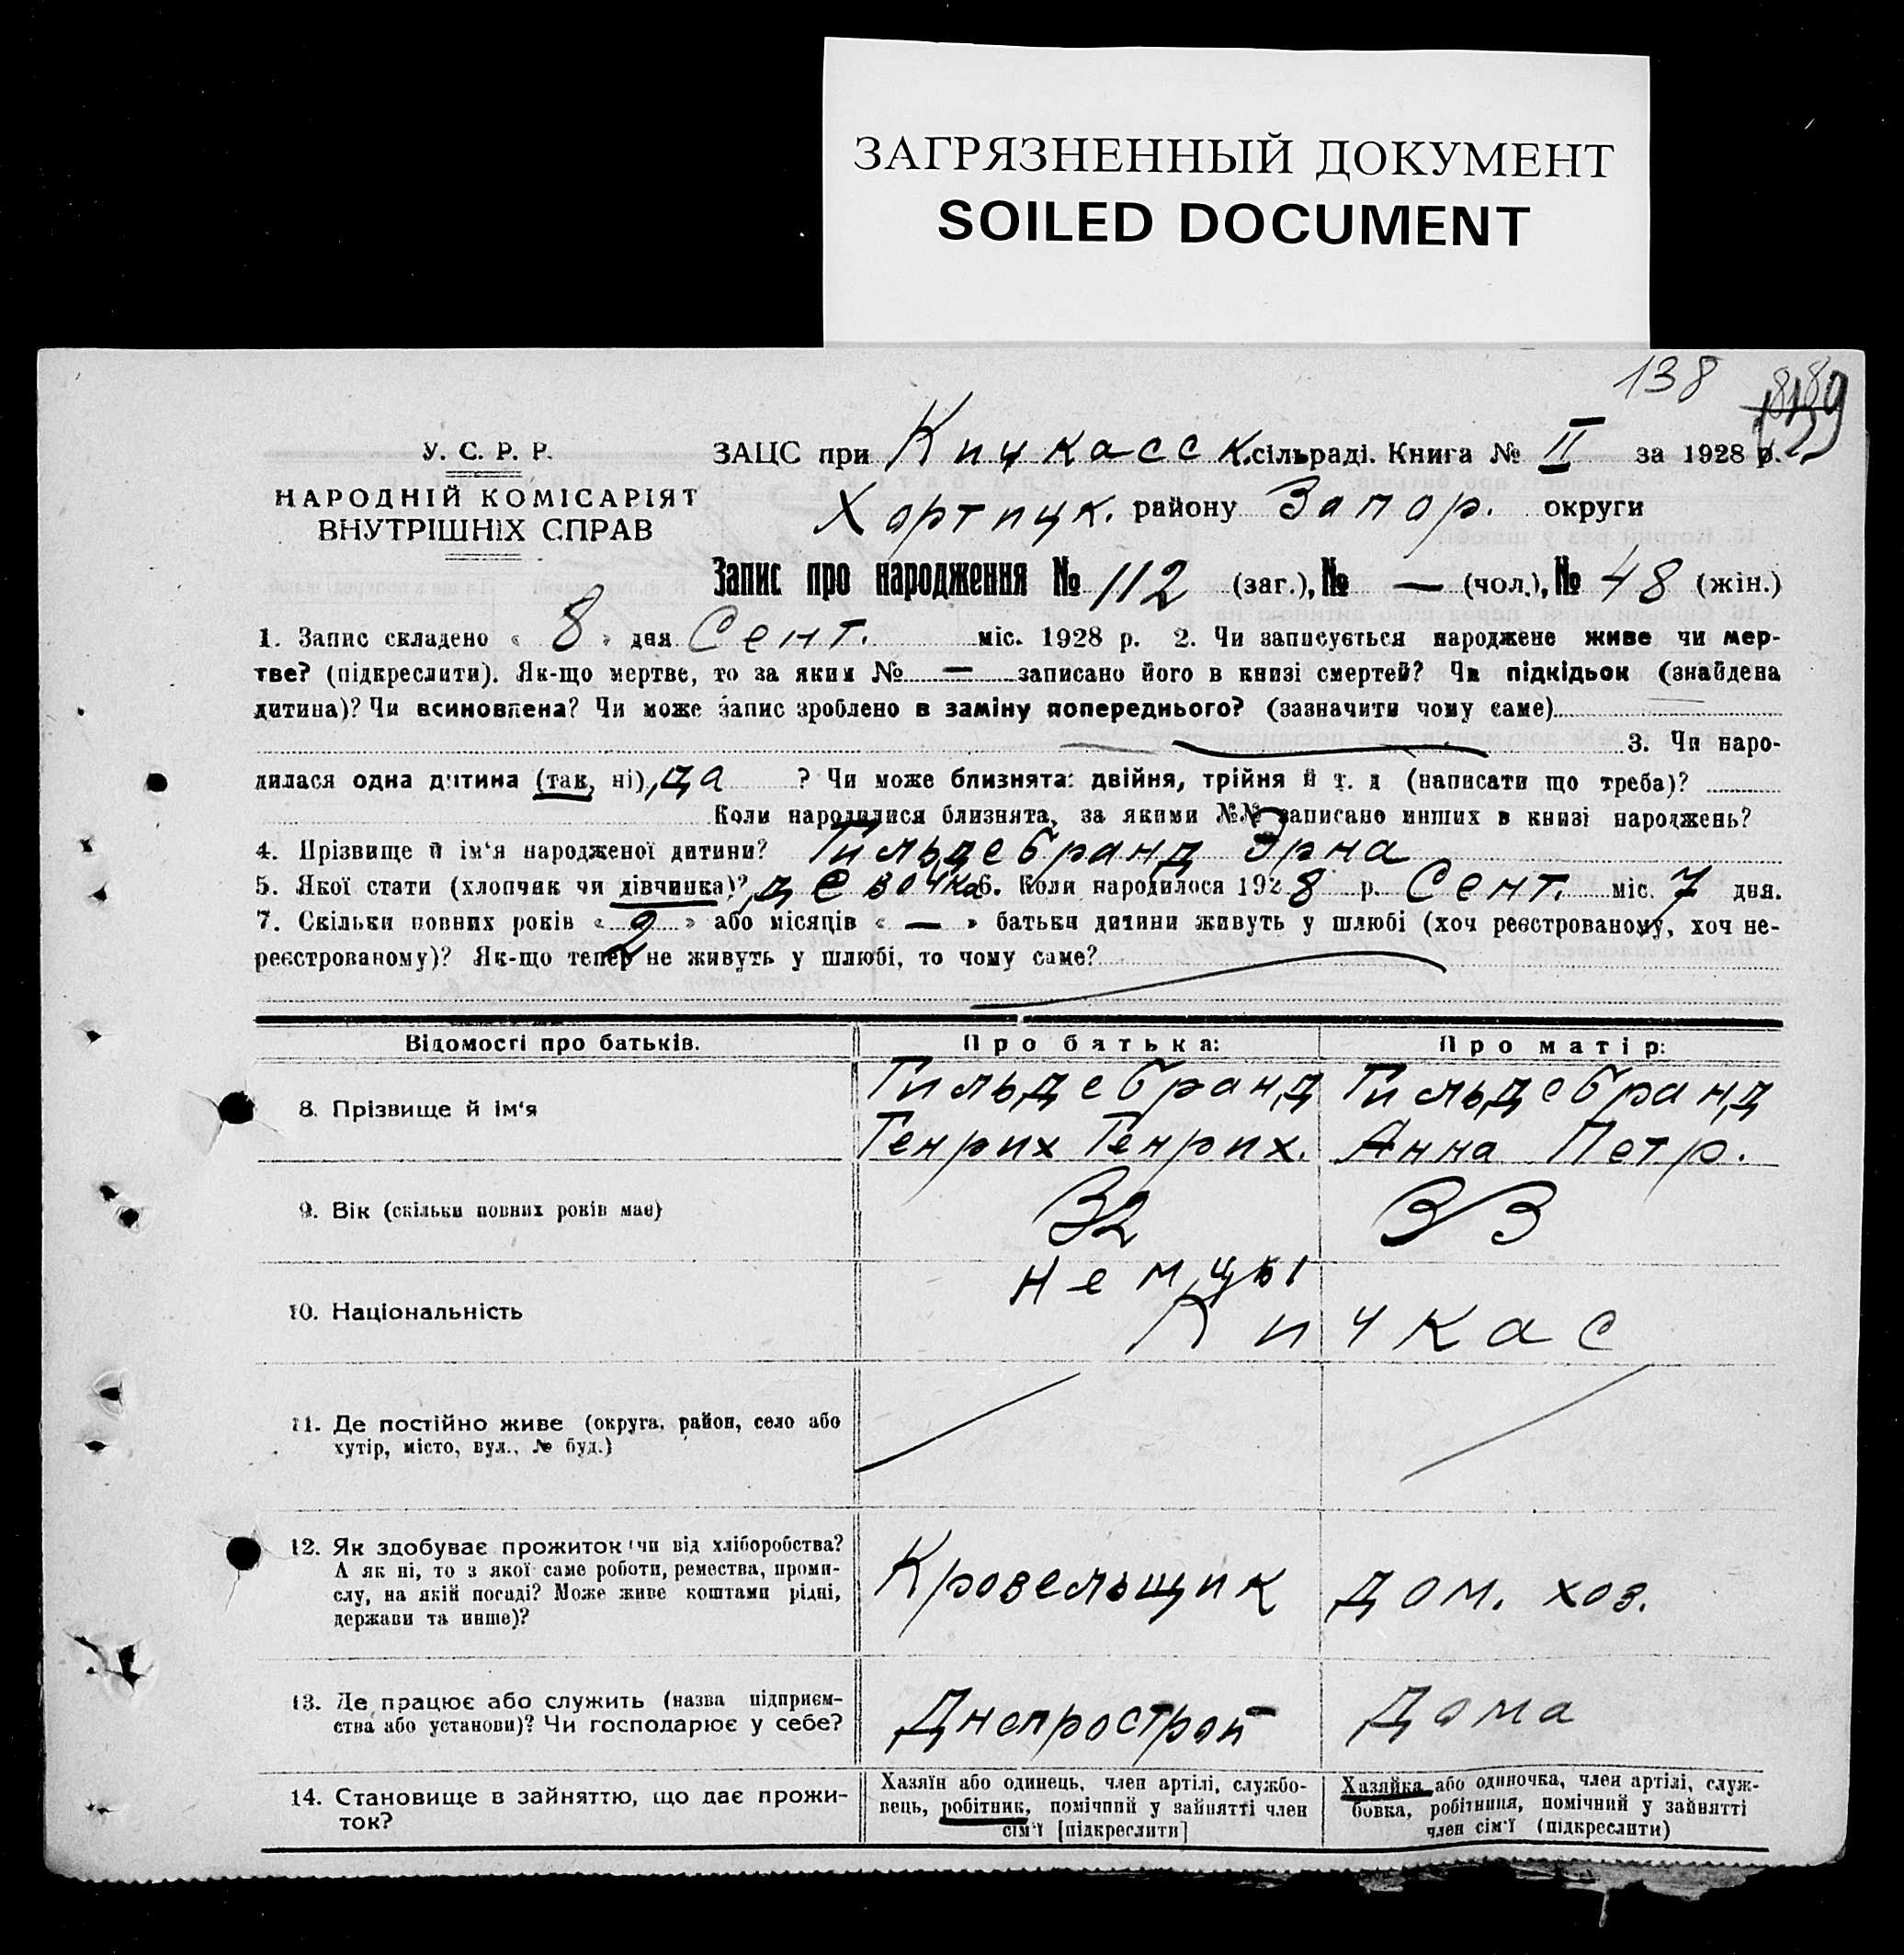 ЗАГРЯЗНЕННЫЙ ДОКУМЕНТ
SOILED DOCUMENT
138
У. С. Р. Р.
НАРОДНІЙ КОМІСАРІЯТ
ВНУТРІШНІХ СПРАВ
ЗАЦС при Кичкасск. сільраді. Книга № II за 1928 р.
Хортицк. району Запор. округи
Запис про народження № 112 (заг.), № — (чол.), № 48 (жін.)
1. Запис складено « 8 » дня Сент. міс. 1928 р. 2. Чи записується народжене живе чи мер-
тве? (підкреслити). Як-що мертве, то за яким № — записано його в книзі смертей? Чи підкідьок (знайдена
дитина)? Чи всиновлена? Чи може запис зроблено в заміну попереднього? (зазначити чому саме)
3. Чи наро-
дилася одна дитина (так, ні), да ? Чи може близнята: двійня, трійня й т. д (написати що треба)?
Коли народилися близнята, за якими №№ записано инших в книзі народжень?
4. Прізвище й ім'я народженої дитини? Гильдебранд Эрна
5. Якої стати (хлопчик чи дівчинка)? девочка 6. Коли народилося 1928 р. Сент. міс. 7 дня.
7. Скільки повних років « 2 » або місяців « — » батьки дитини живуть у шлюбі (хоч реєстрованому, хоч не-
реєстрованому)? Як-що тепер не живуть у шлюбі, то чому саме?
Відомості про батьків. Про батька: Про матір:
8. Прізвище й ім'я
Гильдебранд Генрих Генрих.
Гильдебранд Анна Петр.
9. Вік (скільки повних років має) 32 33
10. Національність
немцы
Кичкас
11. Де постійно живе (округа, район, село або
хутір, місто, вул., № буд.)
12. Як здобуває прожиток чи від хліборобства?
А як ні, то з якої саме роботи, ремества, проми-
слу, на якій посаді? Може живе коштами рідні,
держави та инше)?
Кровельщик дом. хоз.
13. Де працює або служить (назва підприєм-
ства або установи)? Чи господарює у себе?
Днепрострой Дома
14. Становище в зайняттю, що дає прожи-
ток?
Хазяїн або одинець, член артілі, службо-
вець, робітник, помічний у зайнятті член
сім'ї [підкреслити]
Хазяйка або одиночка, член артілі, служ-
бовка, робітниця, помічний у зайнятті
член сім'ї (підкреслити)